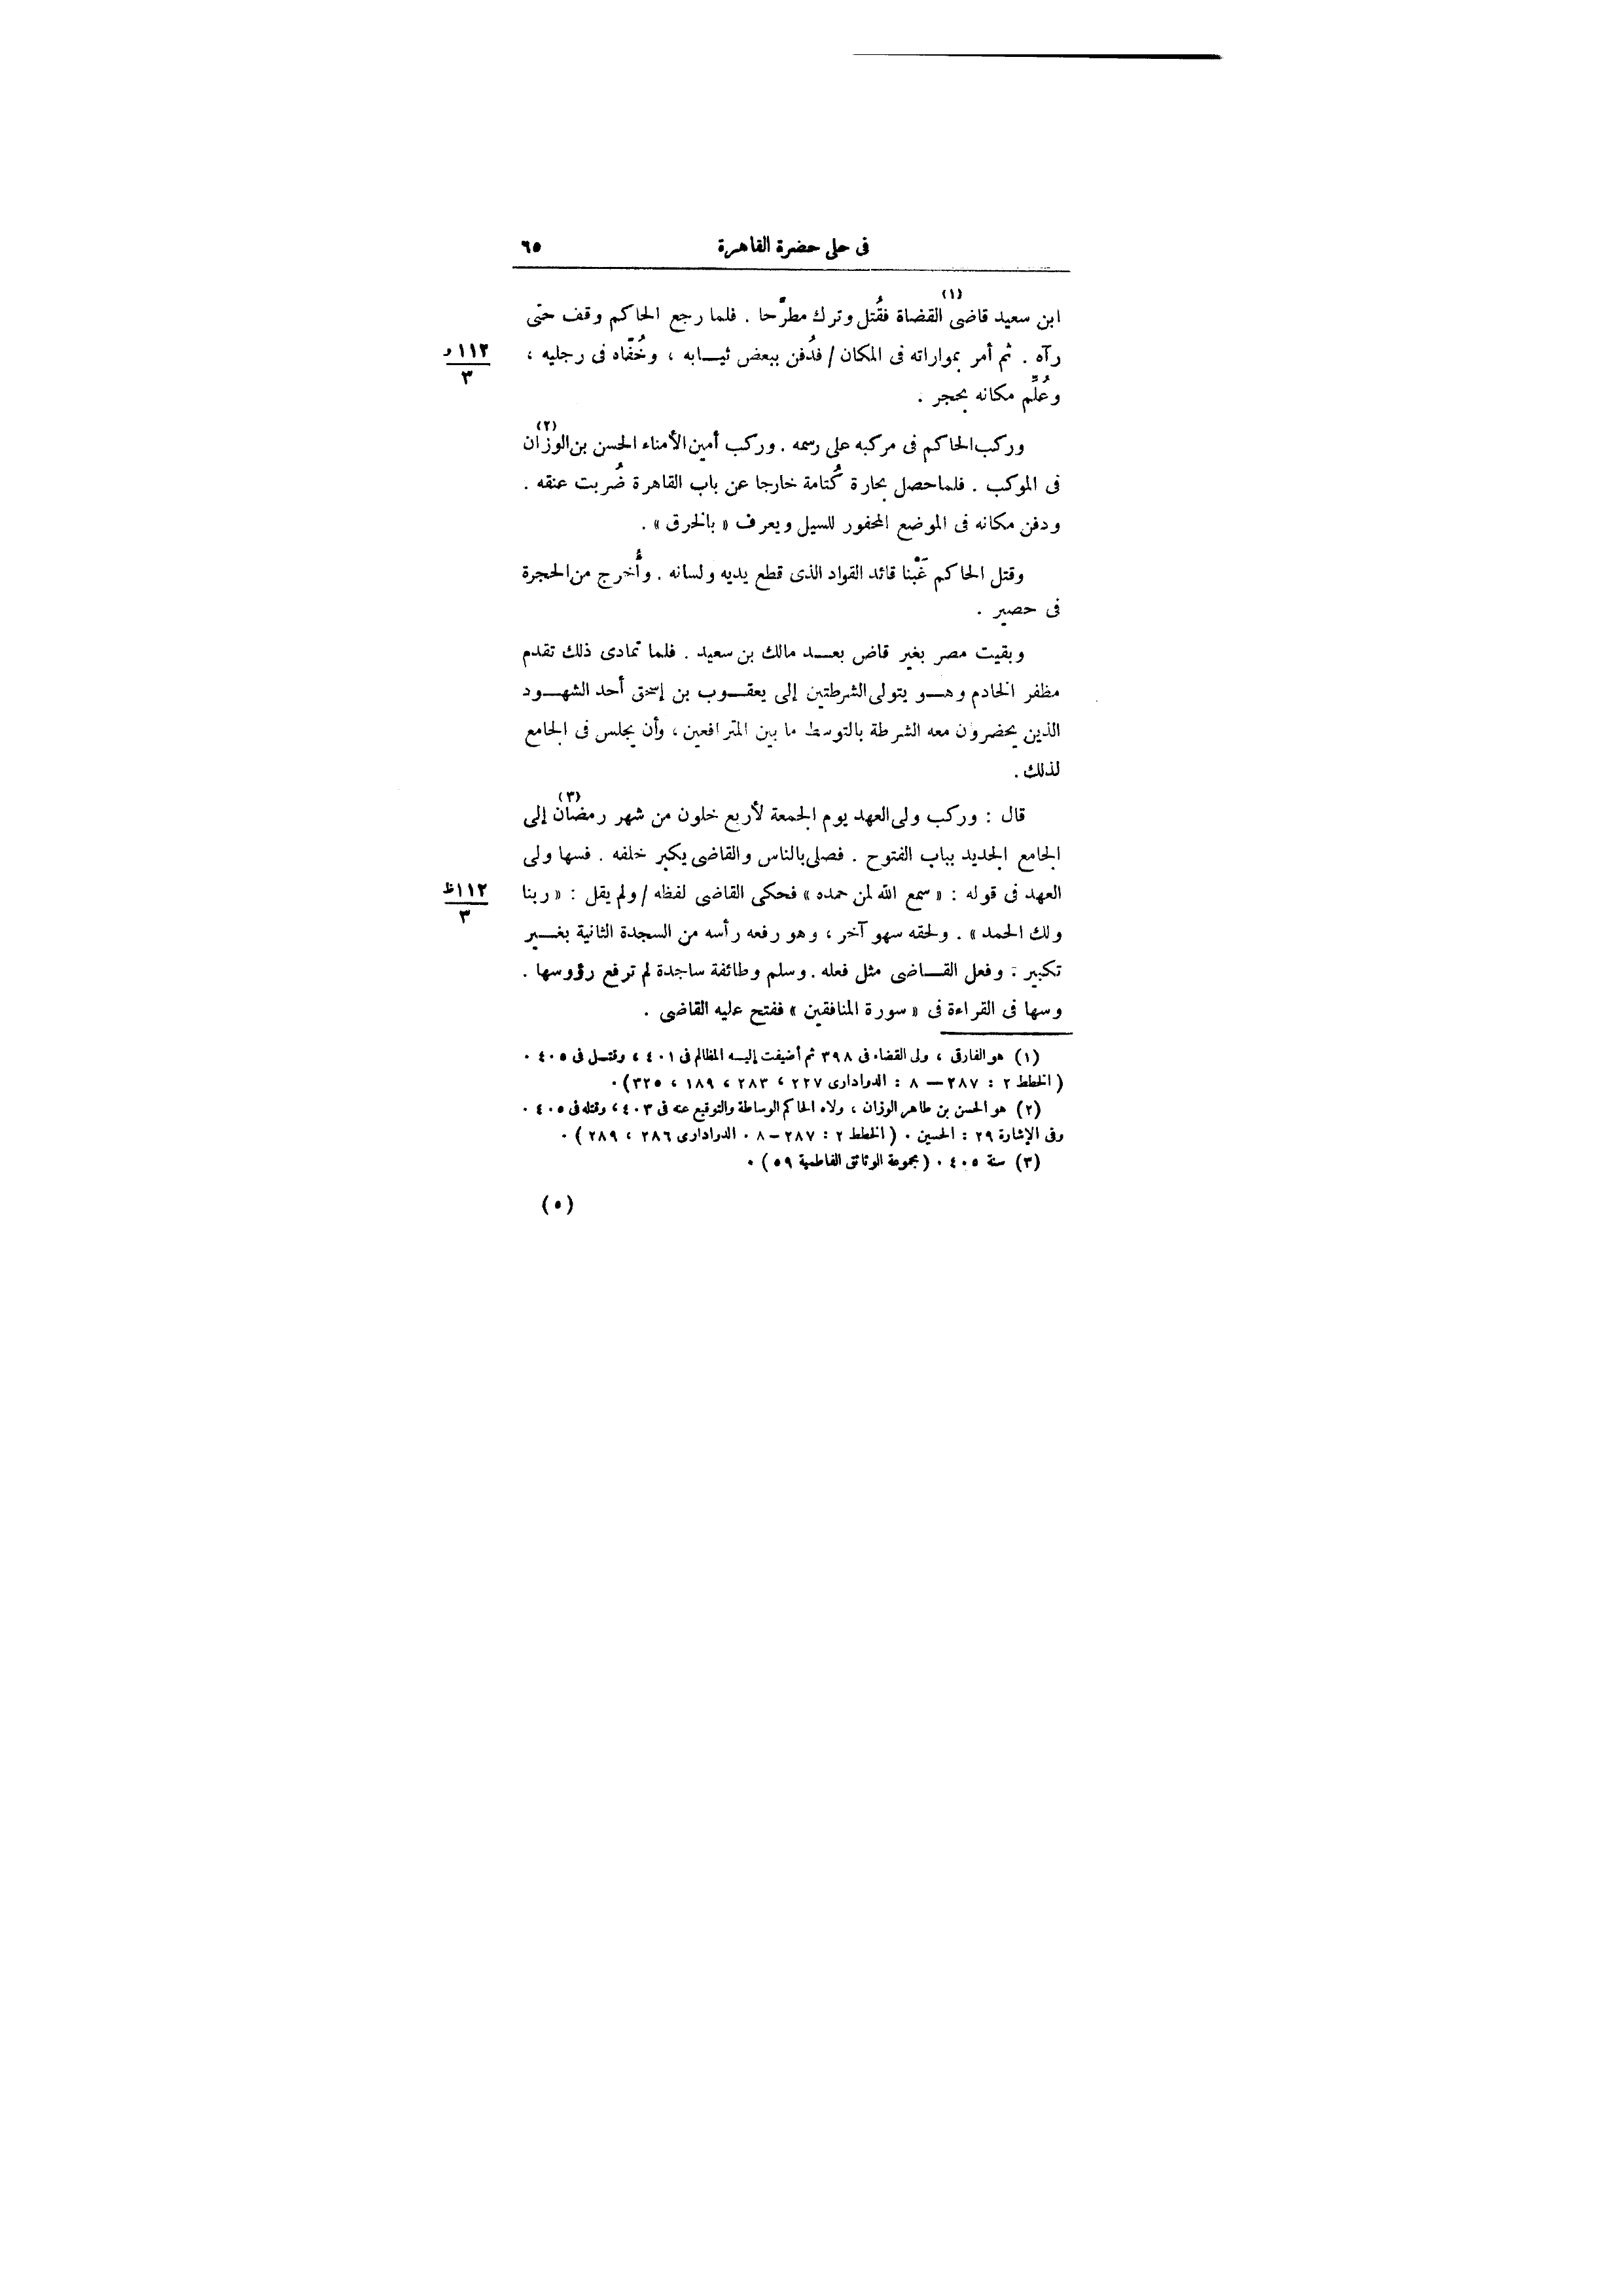 فى حلى حضرة القاهرة ٦٥
ابن سعيد قاضى (١) القضاة فقُتل وترك مطرَّحا . فلما رجع الحاكم وقف حتى
رآه . ثم أمر بمواراته فى المكان / فدُفن ببعض ثيابه ، وخُفّاه فى رجليه ،
١١٢ و
٣
وعُلِّم مكانه بحجر .
وركب الحاكم فى مركبه على رسمه . وركب أمين الأمناء الحسن بن الوزان (٢)
فى الموكب . فلما حصل بحارة كُتامة خارجا عن باب القاهرة ضُربت عنقه .
ودفن مكانه فى الموضع المحفور للسيل ويعرف « بالخرق » .
وقتل الحاكم غَبْنا قائد القواد الذى قطع يديه ولسانه . وأُخرج من الحجرة
فى حصير .
وبقيت مصر بغير قاض بعد مالك بن سعيد . فلما تمادى ذلك تقدم
مظفر الخادم وهو يتولى الشرطتين إلى يعقوب بن إسحق أحد الشهود
الذين يحضرون معه الشرطة بالتوسط ما بين المترافعين ، وأن يجلس فى الجامع
لذلك .
قال : وركب ولى العهد يوم الجمعة لأربع خلون من شهر رمضان (٣) إلى
الجامع الجديد بباب الفتوح . فصلى بالناس والقاضى يكبر خلفه . فسها ولى
العهد فى قوله : « سمع الله لمن حمده » فحكى القاضى لفظه / ولم يقل : « ربنا
١١٢ ظ
٣
ولك الحمد » . ولحقه سهو آخر ، وهو رفعه رأسه من السجدة الثانية بغير
تكبير . وفعل القاضى مثل فعله . وسلم وطائفة ساجدة لم ترفع رؤوسها .
وسها فى القراءة فى « سورة المنافقين » ففتح عليه القاضى .
(١) هو الفارقى ، ولى القضاء فى ٣٩٨ ثم أضيفت إليه المظالم فى ٤٠١ ، وقتل فى ٤٠٥ .
( الخطط ٢ : ٢٨٧ — ٨ : الدوادارى ٢٢٧ ، ٢٨٣ ، ١٨٩ ، ٣٢٥) .
(٢) هو الحسن بن طاهر الوزان ، ولاه الحاكم الوساطة والتوقيع عنه فى ٤٠٣ ، وقتله فى ٤٠٥ .
وفى الإشارة ٢٩ : الحسين . ( الخطط ٢ : ٢٨٧ — ٨ . الدوادارى ٢٨٦ ، ٢٨٩ ) .
(٣) سنة ٤٠٥ . ( مجموعة الوثائق الفاطمية ٥٩ ) .
(٥)